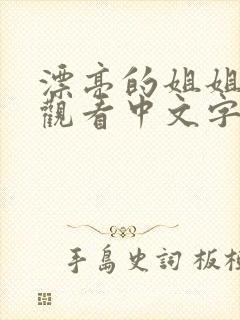 漂亮的姐姐
觀看中文字
手島史詞 板